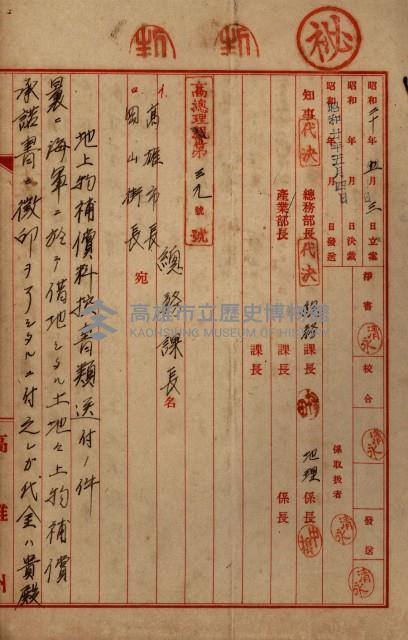 秘
昭和二十年五月三日立案
昭和 年 月 日決裁
昭和 年 月 日發送
昭和廿年五月四日
淨書
清永
校合
清永
發送
清永
係取扱者
清永
知事
代決
總務部長
代決
總務課長
地理係長
産業部長
課長
係長
課長
係長
高總理第三九號
號
總務課長名
イ、高雄市長
ロ、岡山街長
宛
地上物補償料控書類送付ノ件
曩ニ海軍ニ於テ借地シタル土地々上物補償
承諾書ニ徴印ヲ了シタルニ付之レガ代金ハ貴殿
高雄州
高雄市立歷史博物館
KAOHSIUNG MUSEUM OF HISTORY